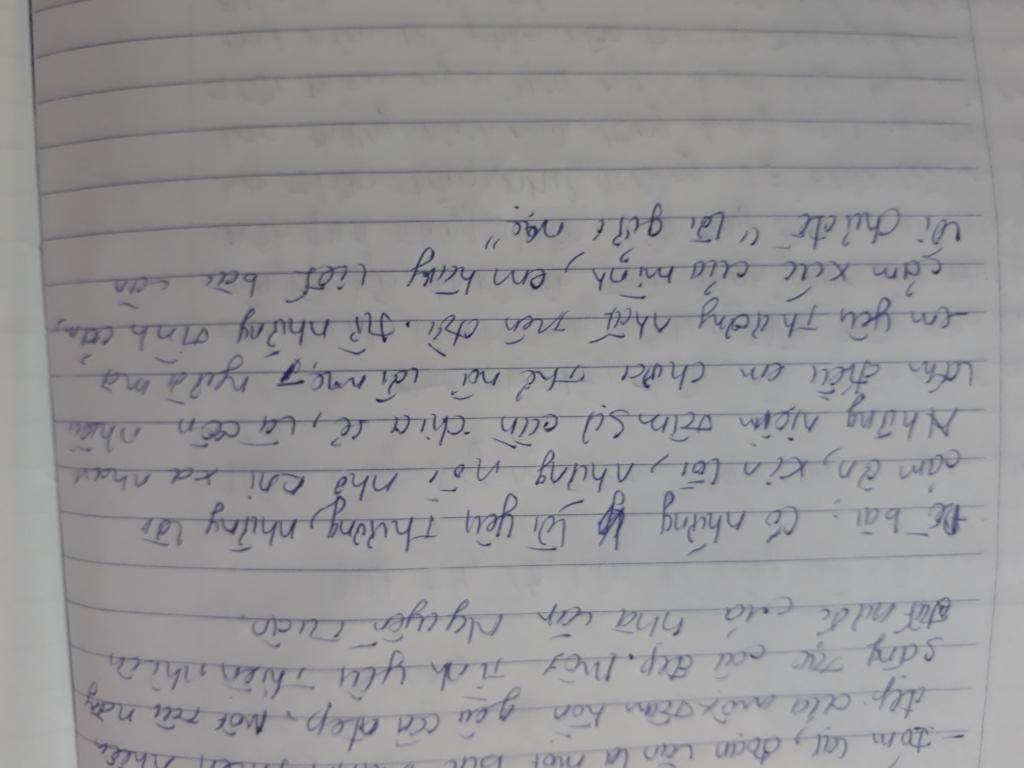 - Tóm lại, đoạn văn là một bức
đẹp của một tâm hồn yêu cái đẹp. Một tài năng
sáng tạo cái đẹp. Một tình yêu thiên nhiên
đất nước của nhà văn Nguyễn Tuân.
Đề bài: Có những lời yêu thương, những lời
cảm ơn, xin lỗi, những nỗi nhớ khi xa nhau
Những niệm tâm sự cần chia sẻ, và còn nhiều
điều em chưa thể nói với mẹ, người mà
em yêu thương nhất trên đời. Từ những tình cảm,
cảm xúc của mình, em hãy viết bài văn
với chủ đề "Lời gửi mẹ"